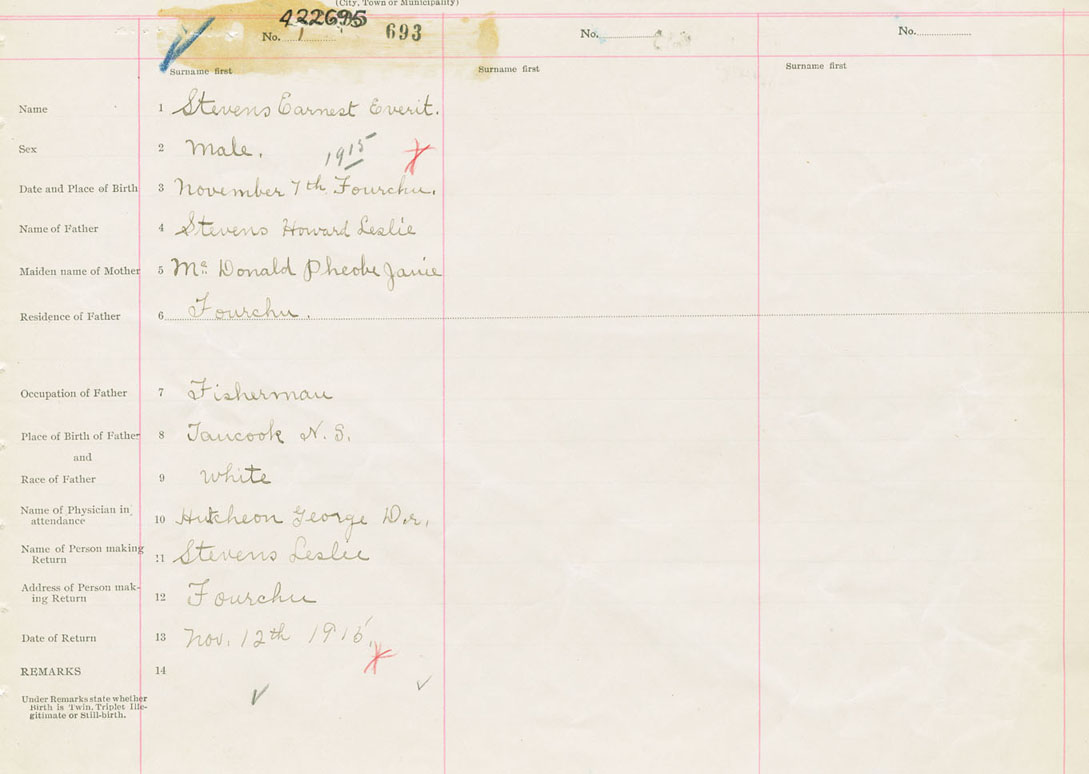 (City, Town or Municipality)
No. 422695 693 No. No.
Surname first Surname first Surname first
Name 1 Stevens Earnest Everit.
Sex 2 Male. 1915
Date and Place of Birth 3 November 7th Fourchu.
Name of Father 4 Stevens Howard Leslie
Maiden name of Mother 5 Mc Donald Pheobe Janie
Residence of Father 6 Fourchu.
Occupation of Father 7 Fisherman
Place of Birth of Father 8 Tancook N. S.
and
Race of Father 9 White
Name of Physician in attendance 10 Hutcheon George Dr.
Name of Person making Return 11 Stevens Leslie
Address of Person making Return 12 Fourchu
Date of Return 13 Nov. 12th 1915.
REMARKS 14
Under Remarks state whether
Birth is Twin, Triplet Ille-
gitimate or Still-birth.